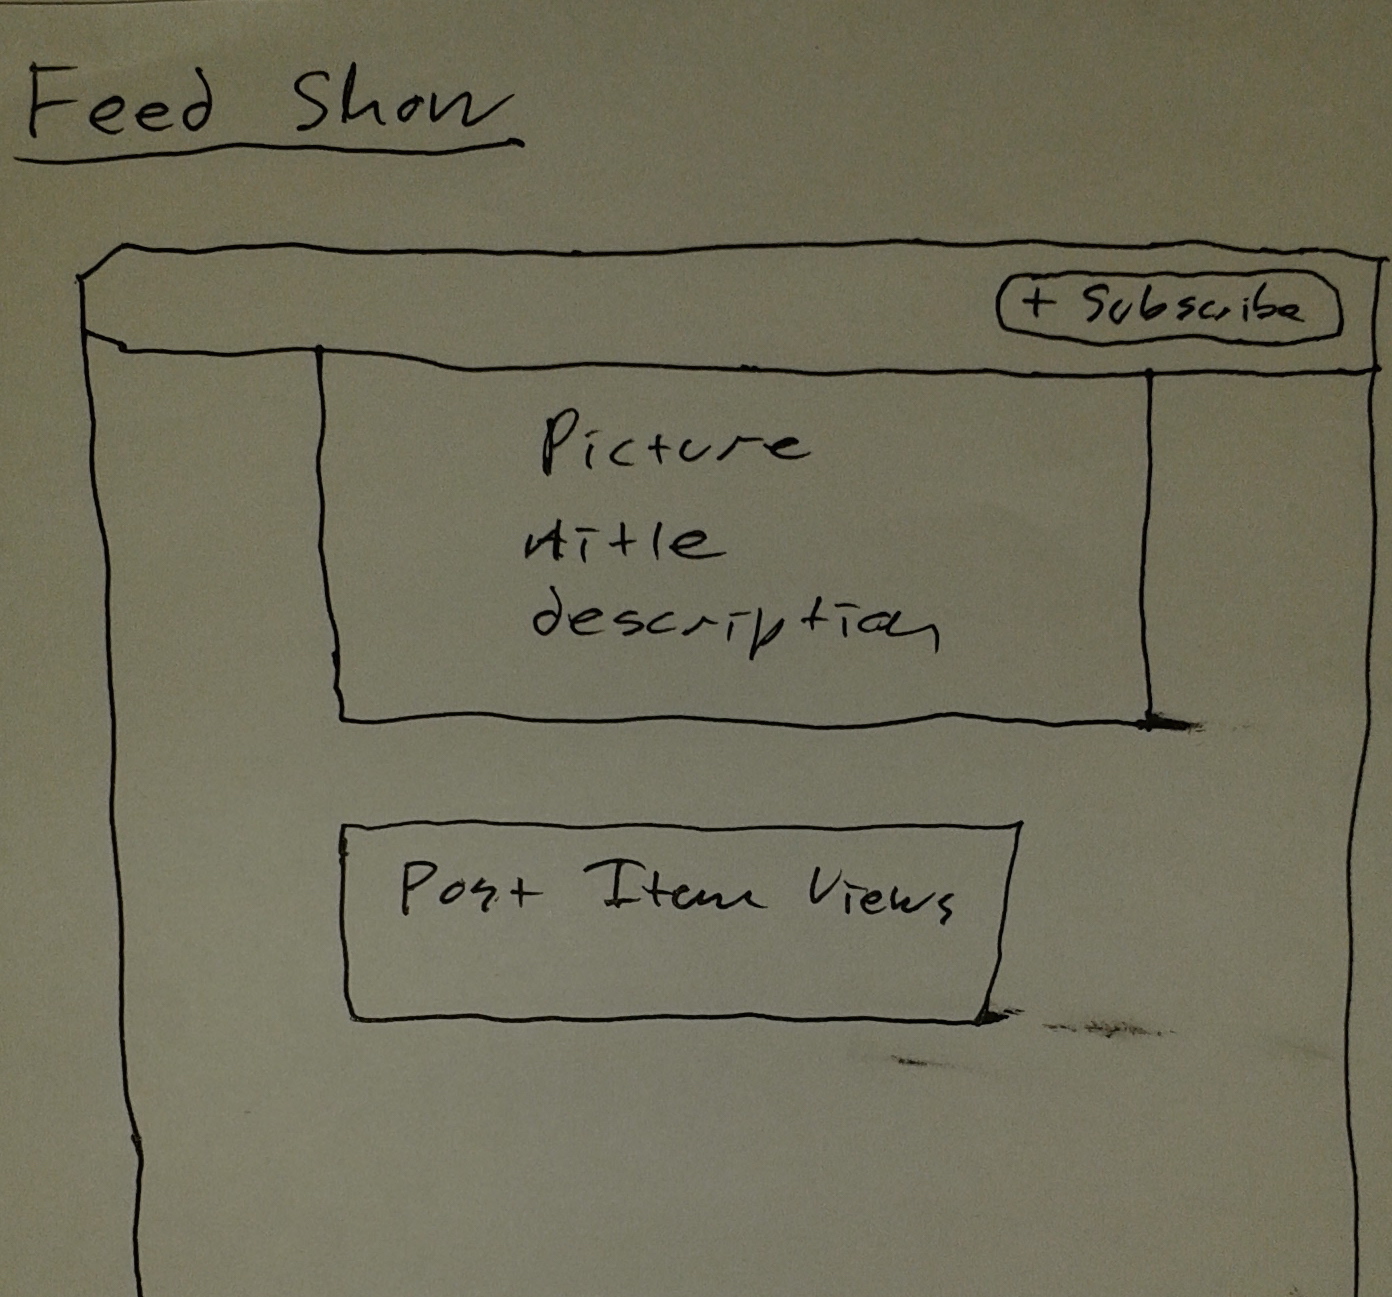 Feed Show
+ Subscribe
Picture
title
description
Post Item Views